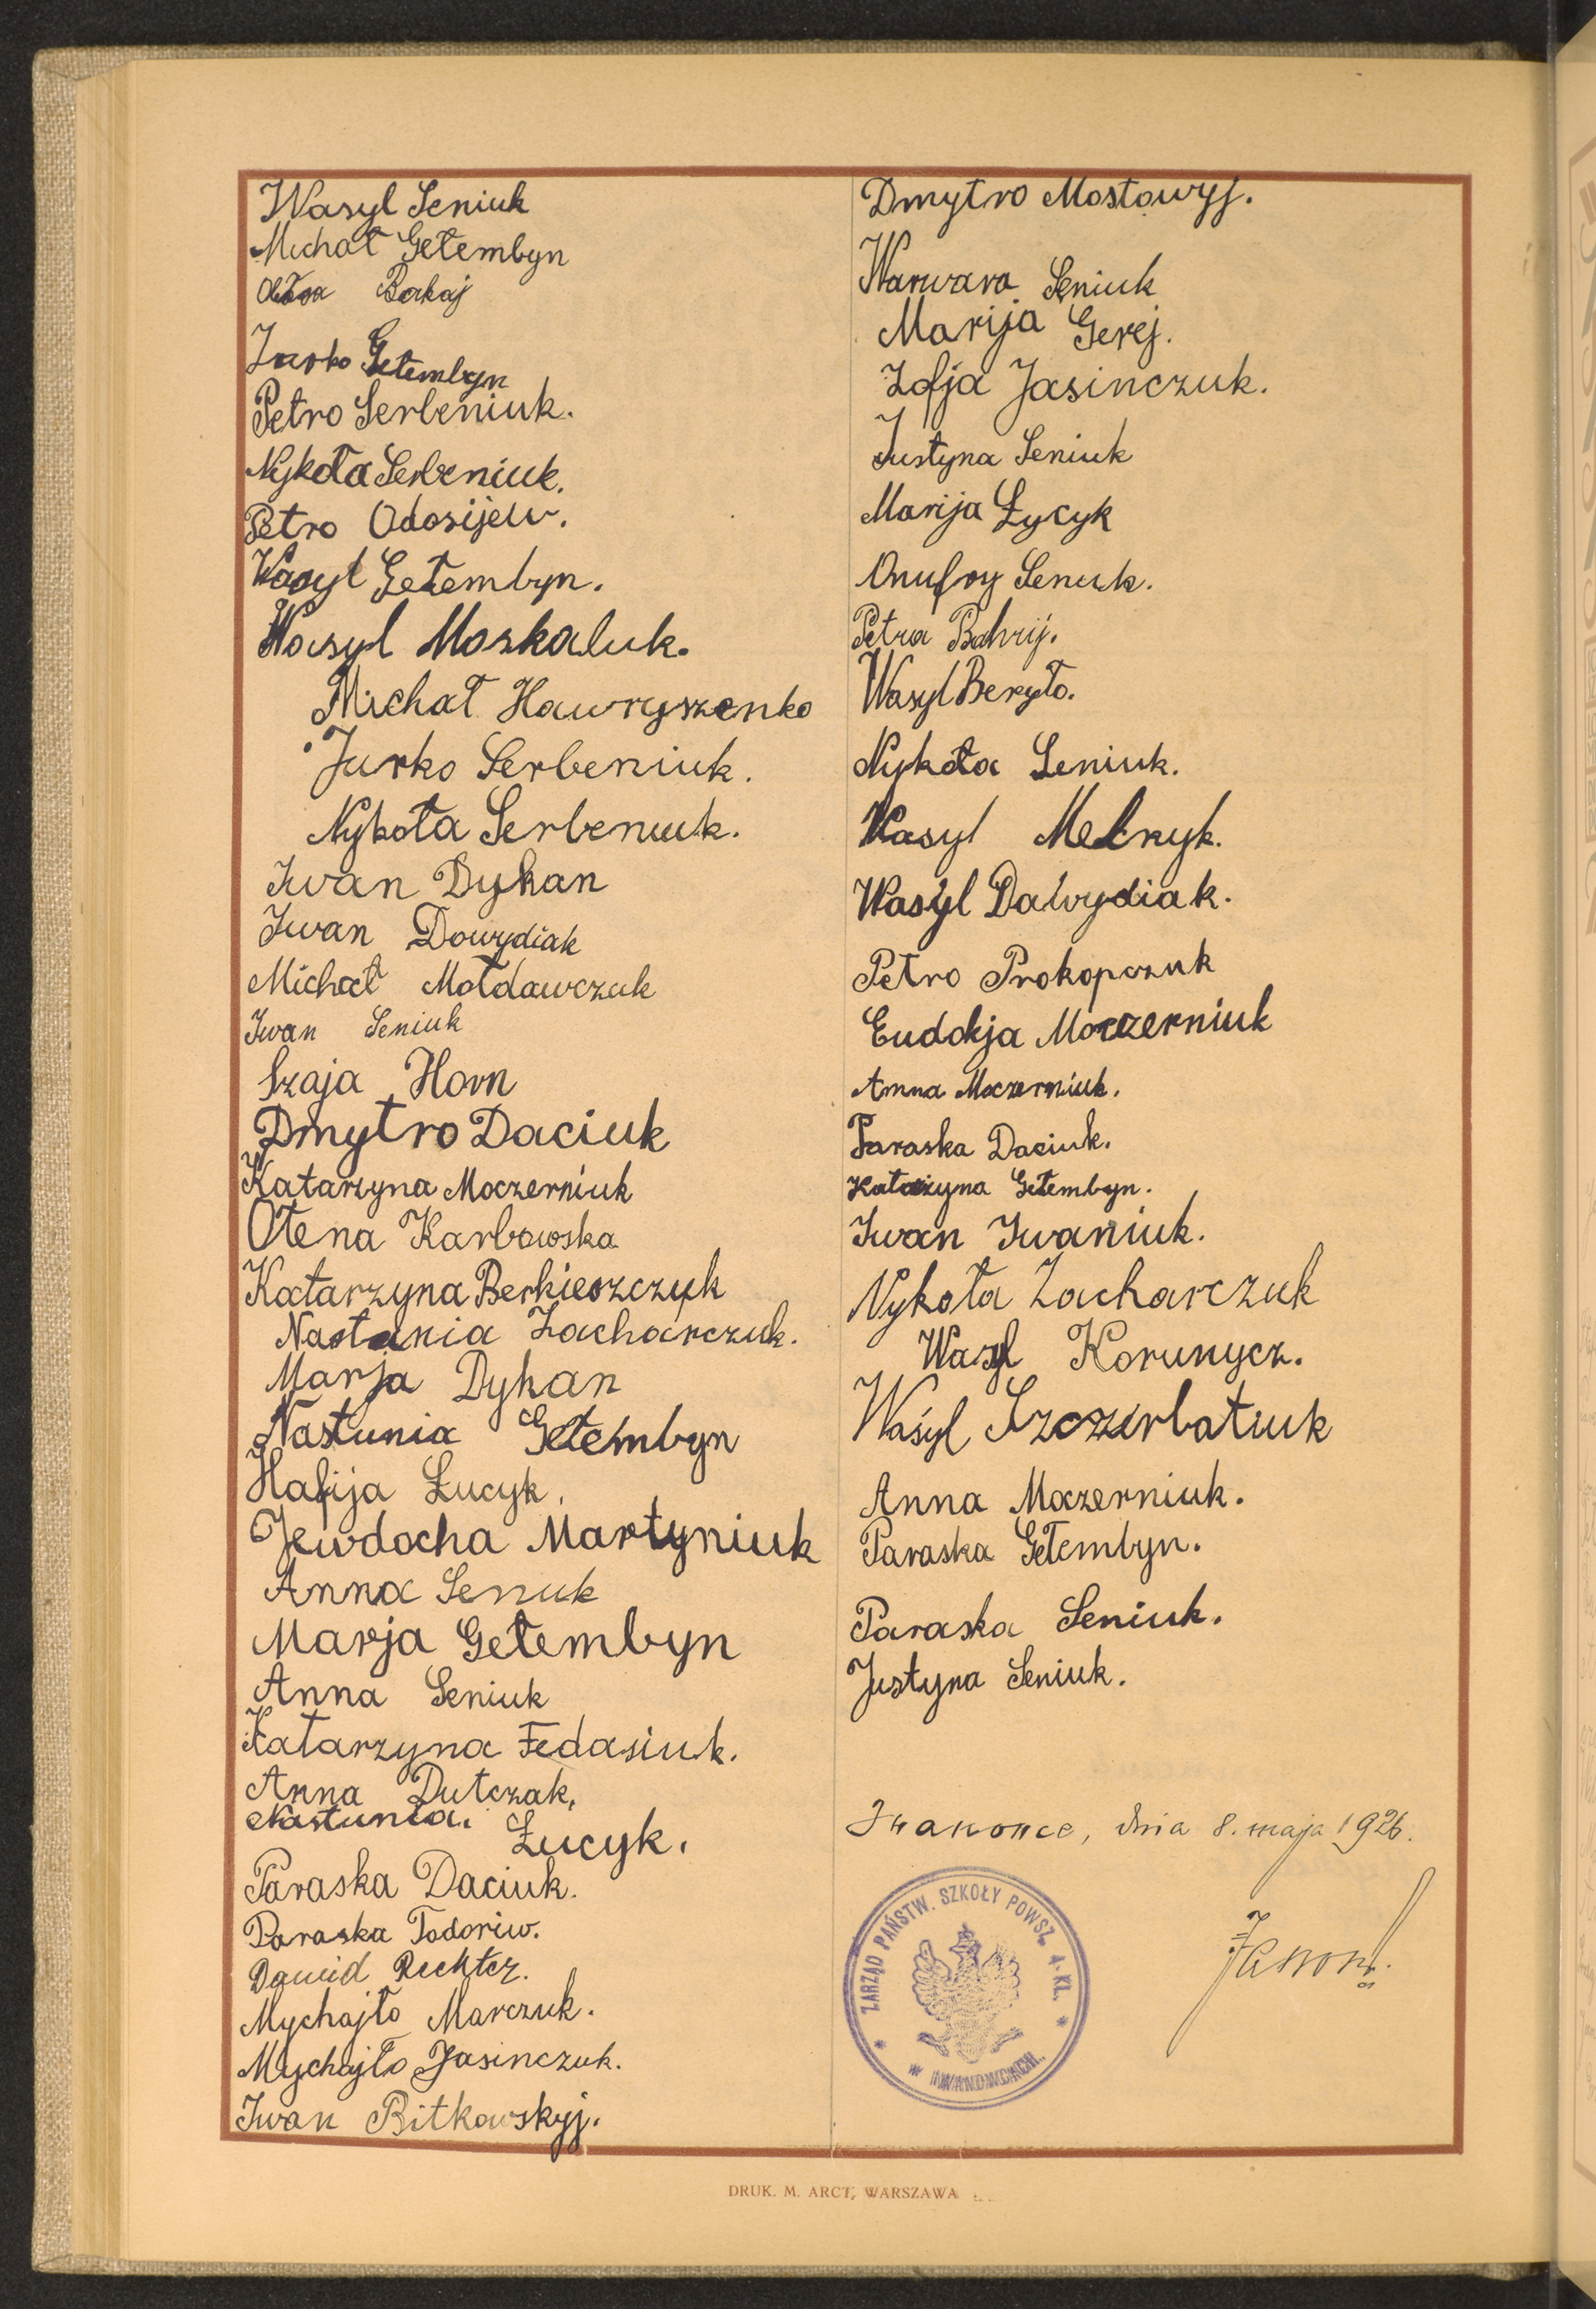 Wasyl Seniuk
Michał Gełembyn
Bakaj
Jurko Gełembyn
Petro Serbeniuk.
Nykoła Serbeniuk.
Petro Odosijew.
Wasyl Gełembyn.
Wasyl Moskaluk.
Michał Hawryszenko
Jurko Serbeniuk.
Nykoła Serbeniuk.
Iwan Dyhan
Iwan Dowydiak
Michał Mołdawczuk
Iwan Seniuk
Szaja Horn
Dmytro Daciuk
Katarzyna Moczerniuk
Ołena Karbowska
Katarzyna Berkieszczuk
Nastunia Zacharczuk.
Marja Dyhan
Nastunia Gełembyn
Hafija Łucyk.
Jewdocha Martyniuk
Anna Senuk
Marja Gełembyn
Anna Seniuk
Katarzyna Fedasiuk.
Anna Dutczak,
Nastunia. Łucyk.
Paraska Daciuk.
Paraska Todoriw.
Dawid Rechter.
Mychajło Marczuk.
Mychajło Jasinczuk.
Iwan Bitkowskyj.
Dmytro Mostowyj.
Warwara Seniuk
Marija Gerej.
Zofja Jasinczuk.
Justyna Seniuk
Marija Łycyk
Onufry Senuk.
Petra Bahrij.
Wasyl Beryło.
Nykoła Seniuk.
Wasyl Melnyk.
Wasyl Dawydiak.
Petro Prokopczuk
Eudokja Moczerniuk
Anna Moczerniuk.
Paraska Daciuk.
Katarzyna Gełembyn.
Iwan Iwaniuk.
Nykoła Zacharczuk
Wasyl Korunycz.
Wasyl Szczerbatiuk
Anna Moczerniuk.
Paraska Gełembyn.
Paraska Seniuk.
Justyna Seniuk.
Iwanowce, dnia 8. maja 1926.
ZARZĄD PAŃSTW. SZKOŁY POWSZ. 4. KL.
w IWANOWCACH.
DRUK. M. ARCT, WARSZAWA